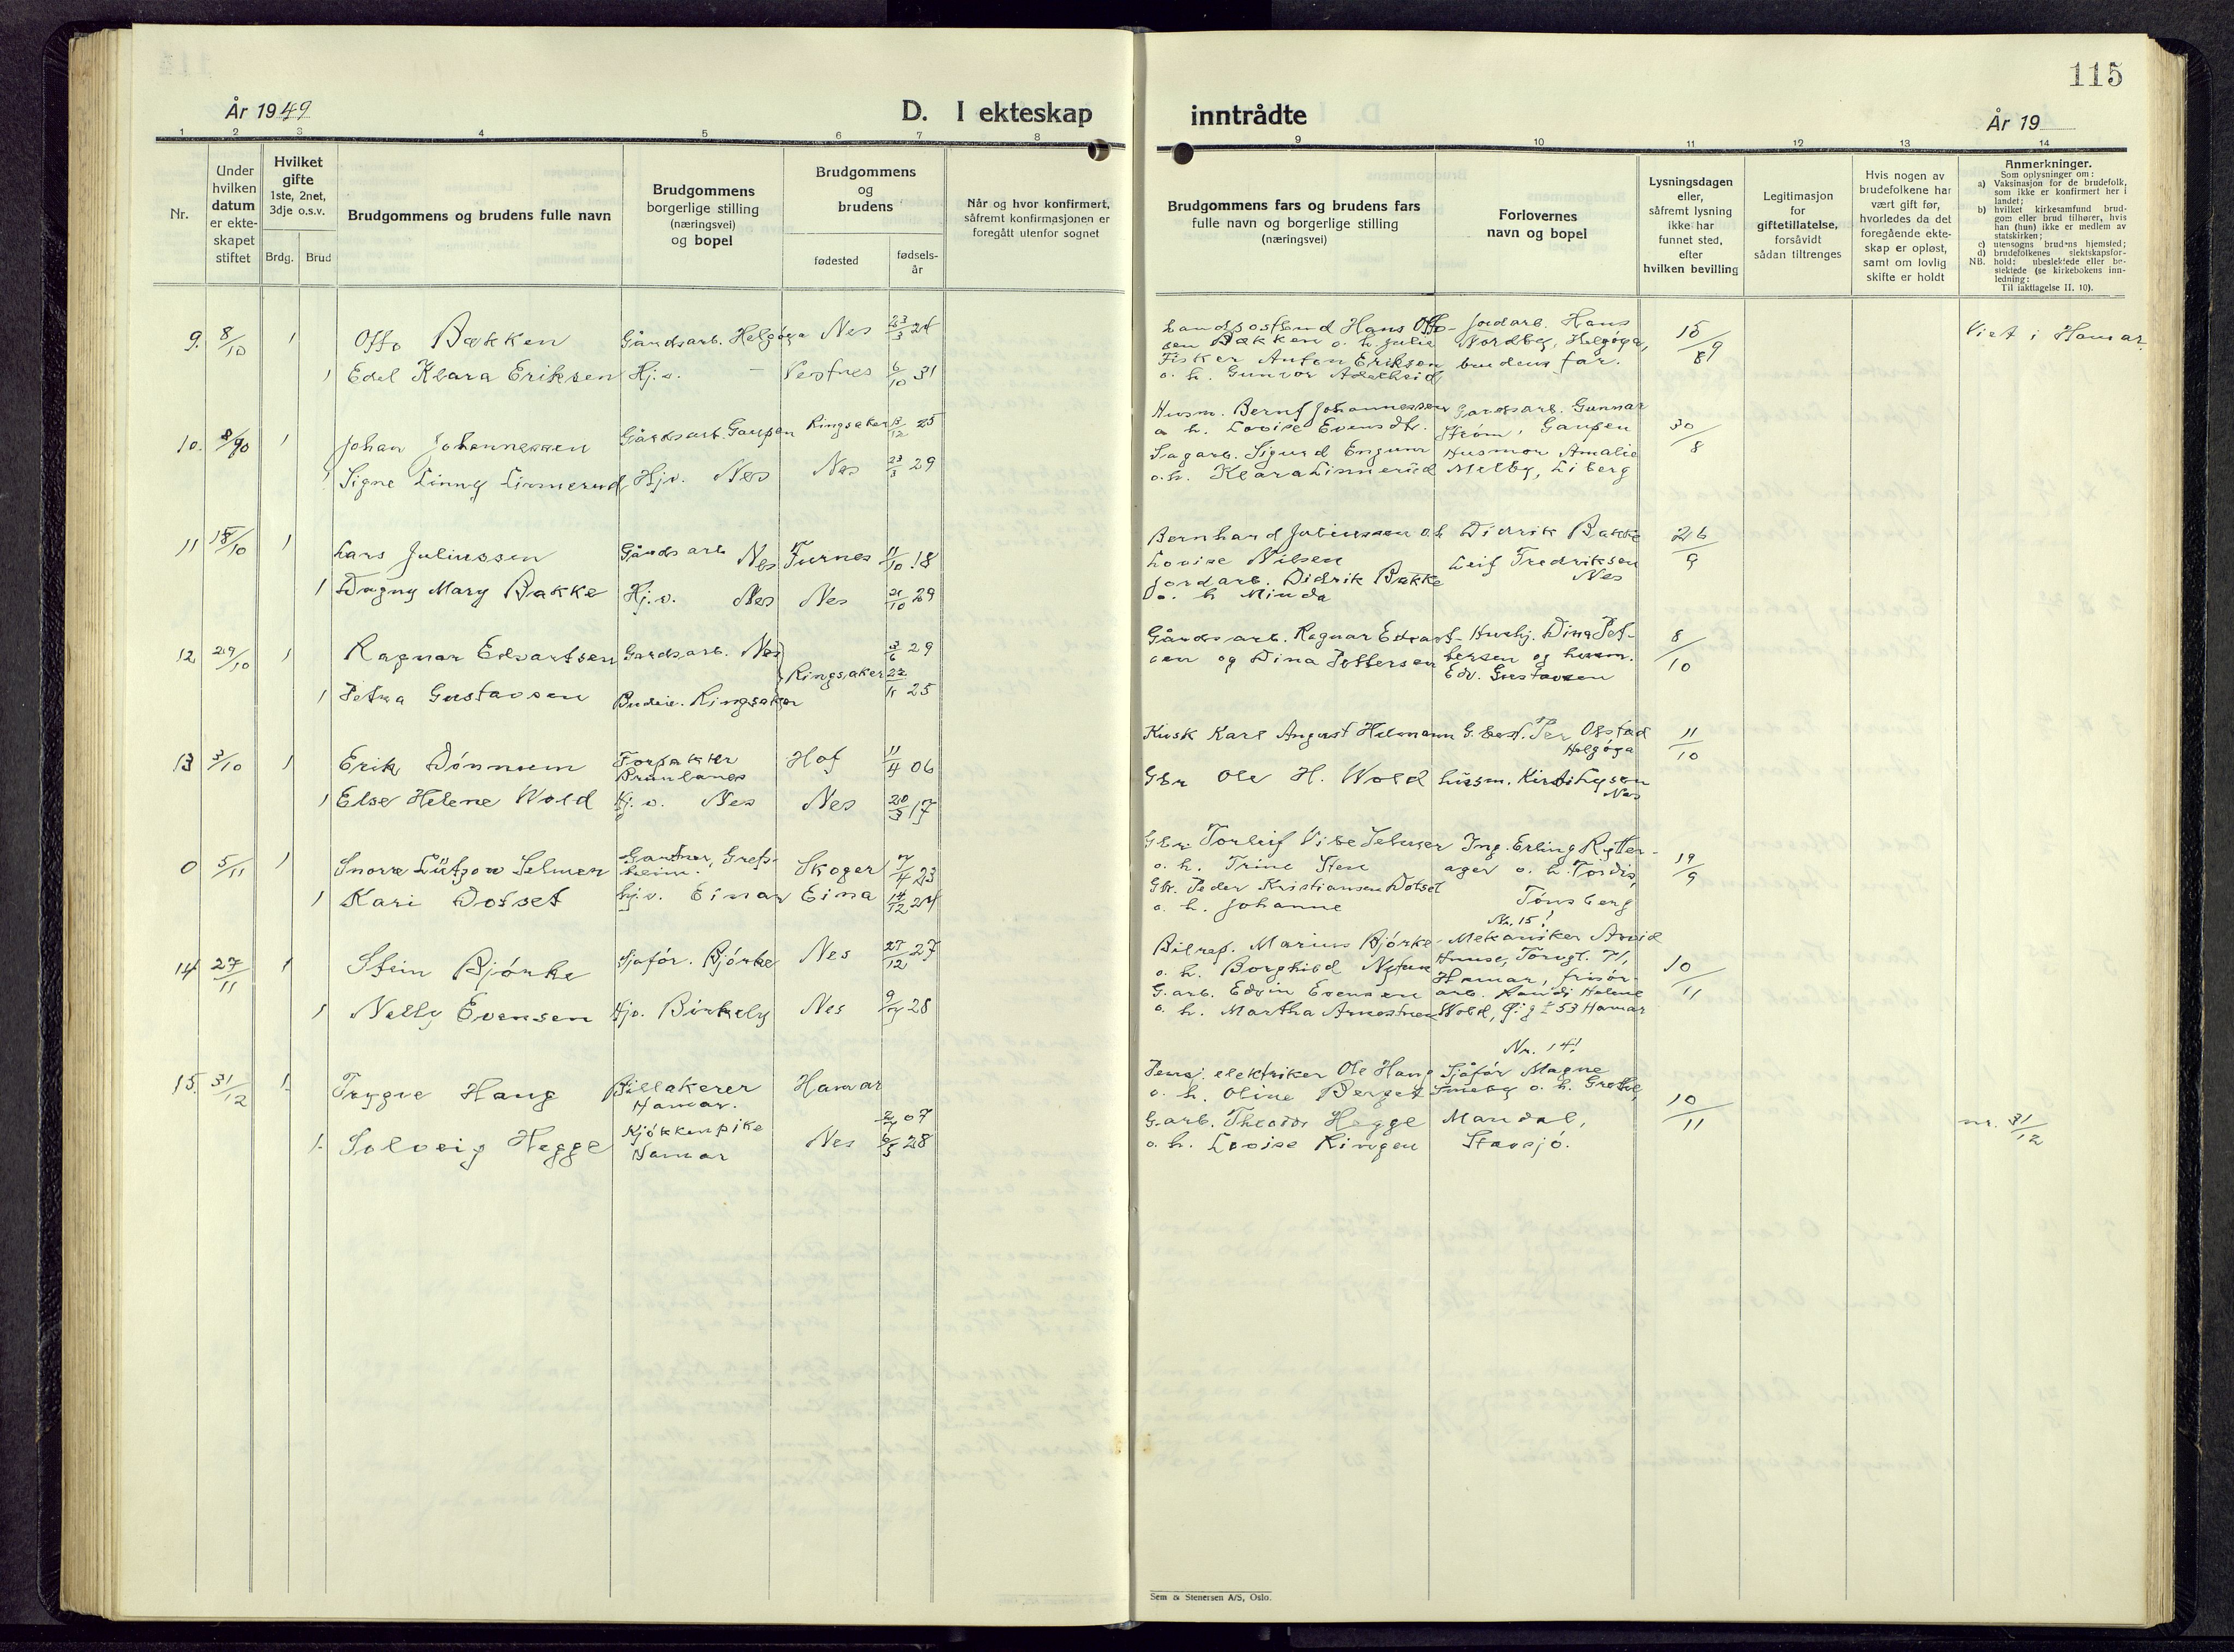 115
År 1949
D. I ekteskap
inntrådte
År 19
1 2 3 4 5 6 7 8 9 10 11 12 13 14
Nr.
Under
hvilken
datum
er ekte-
skapet
stiftet
Hvilket
gifte
1ste, 2net,
3dje o.s.v.
Brdg. Brud
Brudgommens og brudens fulle navn
Brudgommens
borgerlige stilling
(næringsvei)
og bopel
Brudgommens
og
brudens
fødested
fødsels-
år
Når og hvor konfirmert,
såfremt konfirmasjonen er
foregått utenfor sognet
Brudgommens fars og brudens fars
fulle navn og borgerlige stilling
(næringsvei)
Forlovernes
navn og bopel
Lysningsdagen
eller,
såfremt lysning
ikke har
funnet sted,
efter
hvilken bevilling
Legitimasjon
for
giftetillatelse,
forsåvidt
sådan tiltrenges
Hvis nogen av
brudefolkene har
vært gift før,
hvorledes da det
foregående ekte-
skap er opløst,
samt om lovlig
skifte er holdt
Anmerkninger.
Som oplysninger om:
a) Vaksinasjon for de brudefolk,
som ikke er konfirmert her i
landet;
b) hvilket kirkesamfund brud-
gom eller brud tilhører, hvis
han (hun) ikke er medlem av
statskirken;
c) utensogns brudens hjemsted;
d) brudefolkenes slektskapsfor-
NB. hold: ubeslektede eller be-
slektede (se kirkebokens inn-
ledning:
Til iakttagelse II. 10).
9. 8/10 1 Otto Bakken Gårdsarb. Helgøya Nes 23/3 24
1 Edel Klara Eriksen Hj.v. — Vestnes 6/10 31
Landpostbud Hans Otto- Jordarb. Hans
sen Bakken o. h. Julie Nordby, Helgøya,
Fisker Anton Eriksen brudens far.
o. h. Gunvor
9
Viet i Hamar
10. 1 Johan Johannessen Gårdsarb. Gaupen Ringsaker 25
1 Signe Linny Linnerud Hj.v. Nes Nes 23/3 29
Husm. Bernt Johannessen Gardsarb. Gunnar
o. h. Lovise Strøm, Gaupen
Sagarb. Sigurd Engum Husmor Amalie
o.h. Klara Linnerud Melby, Liberg
30/8
11 15/10 1 Lars Juliussen Gårdsarb Nes Furnes 11/10 18
1 Dagny Mary Bakke Hj.v. Nes Nes 21/10 29
Bernhard Juliussen o.h Didrik Bakke
Lovise Nilsen Leif Fredriksen
Jordarb. Didrik Bakke Nes
o. h Minda
26/9
12 29/10 1 Ragnar Edvartsen Gardsarb. Nes 3/6 29
Ringsaker
1 Petra Gustavsen Budeie. Ringsaker 22/11 25
Gårdsarb. Ragnar Edvart- Hushj. Dina Pet-
sen og Dina Pettersen tersen og husm.
Edv. Gustavsen
8/10
13 3/10 1 Erik Dønnum Forpakter Hof 11/4 06
Brunlanes
1 Else Helene Wold Hj.v. Nes Nes 20/3 17
Kusk Karl August G.best. Per Opstad
Helgøya
Gbr Ole H. Wold husm. Kirsti
Nes
11/10
0 5/11 1 Snorre Lützow Selmer Gartner, Grefs-
heim. Skoger 7/4 23
1 Kari Dotset hj.v. Eina Eina 14/12 24
Gbr. Torleif Vibe Selmer Ing. Erling Rytter-
o. h. Trine Sten ager o. h. Tordis,
Gbr. Peder Kristiansen Dotset Tønsberg
o. h. Johanne
19/9
Nr. 15!
14 27/11 1 Stein Bjørke Sjåfør. Bjørke Nes 27/12 27
1 Nelly Evensen Hjv. Birkely Nes 28
Bilrep. Marius Bjørke Mekaniker Arvid
o. h. Borghild Torvgt. 71,
G.arb. Edvin Evensen Hamar, frisør-
o. h. Martha arb. Randi Helene
Wold, 53 Hamar
10/11
Nr. 14!
15. 31/12 1. Trygve Haug Billakerer Hamar
Hamar. 07
1. Solveig Hegge Kjøkkenpike Nes 6/5 28
Hamar
Pensj. elektriker Ole Haug Sjåfør Magne
o. h. Oline Berget Smeby o. h. Grethe,
G.arb. Theodor Hegge Mandal,
o. h. Lovise Ringen Stavsjø.
10/11
nr. 31/12
Sem & Stenersen A/S, Oslo.